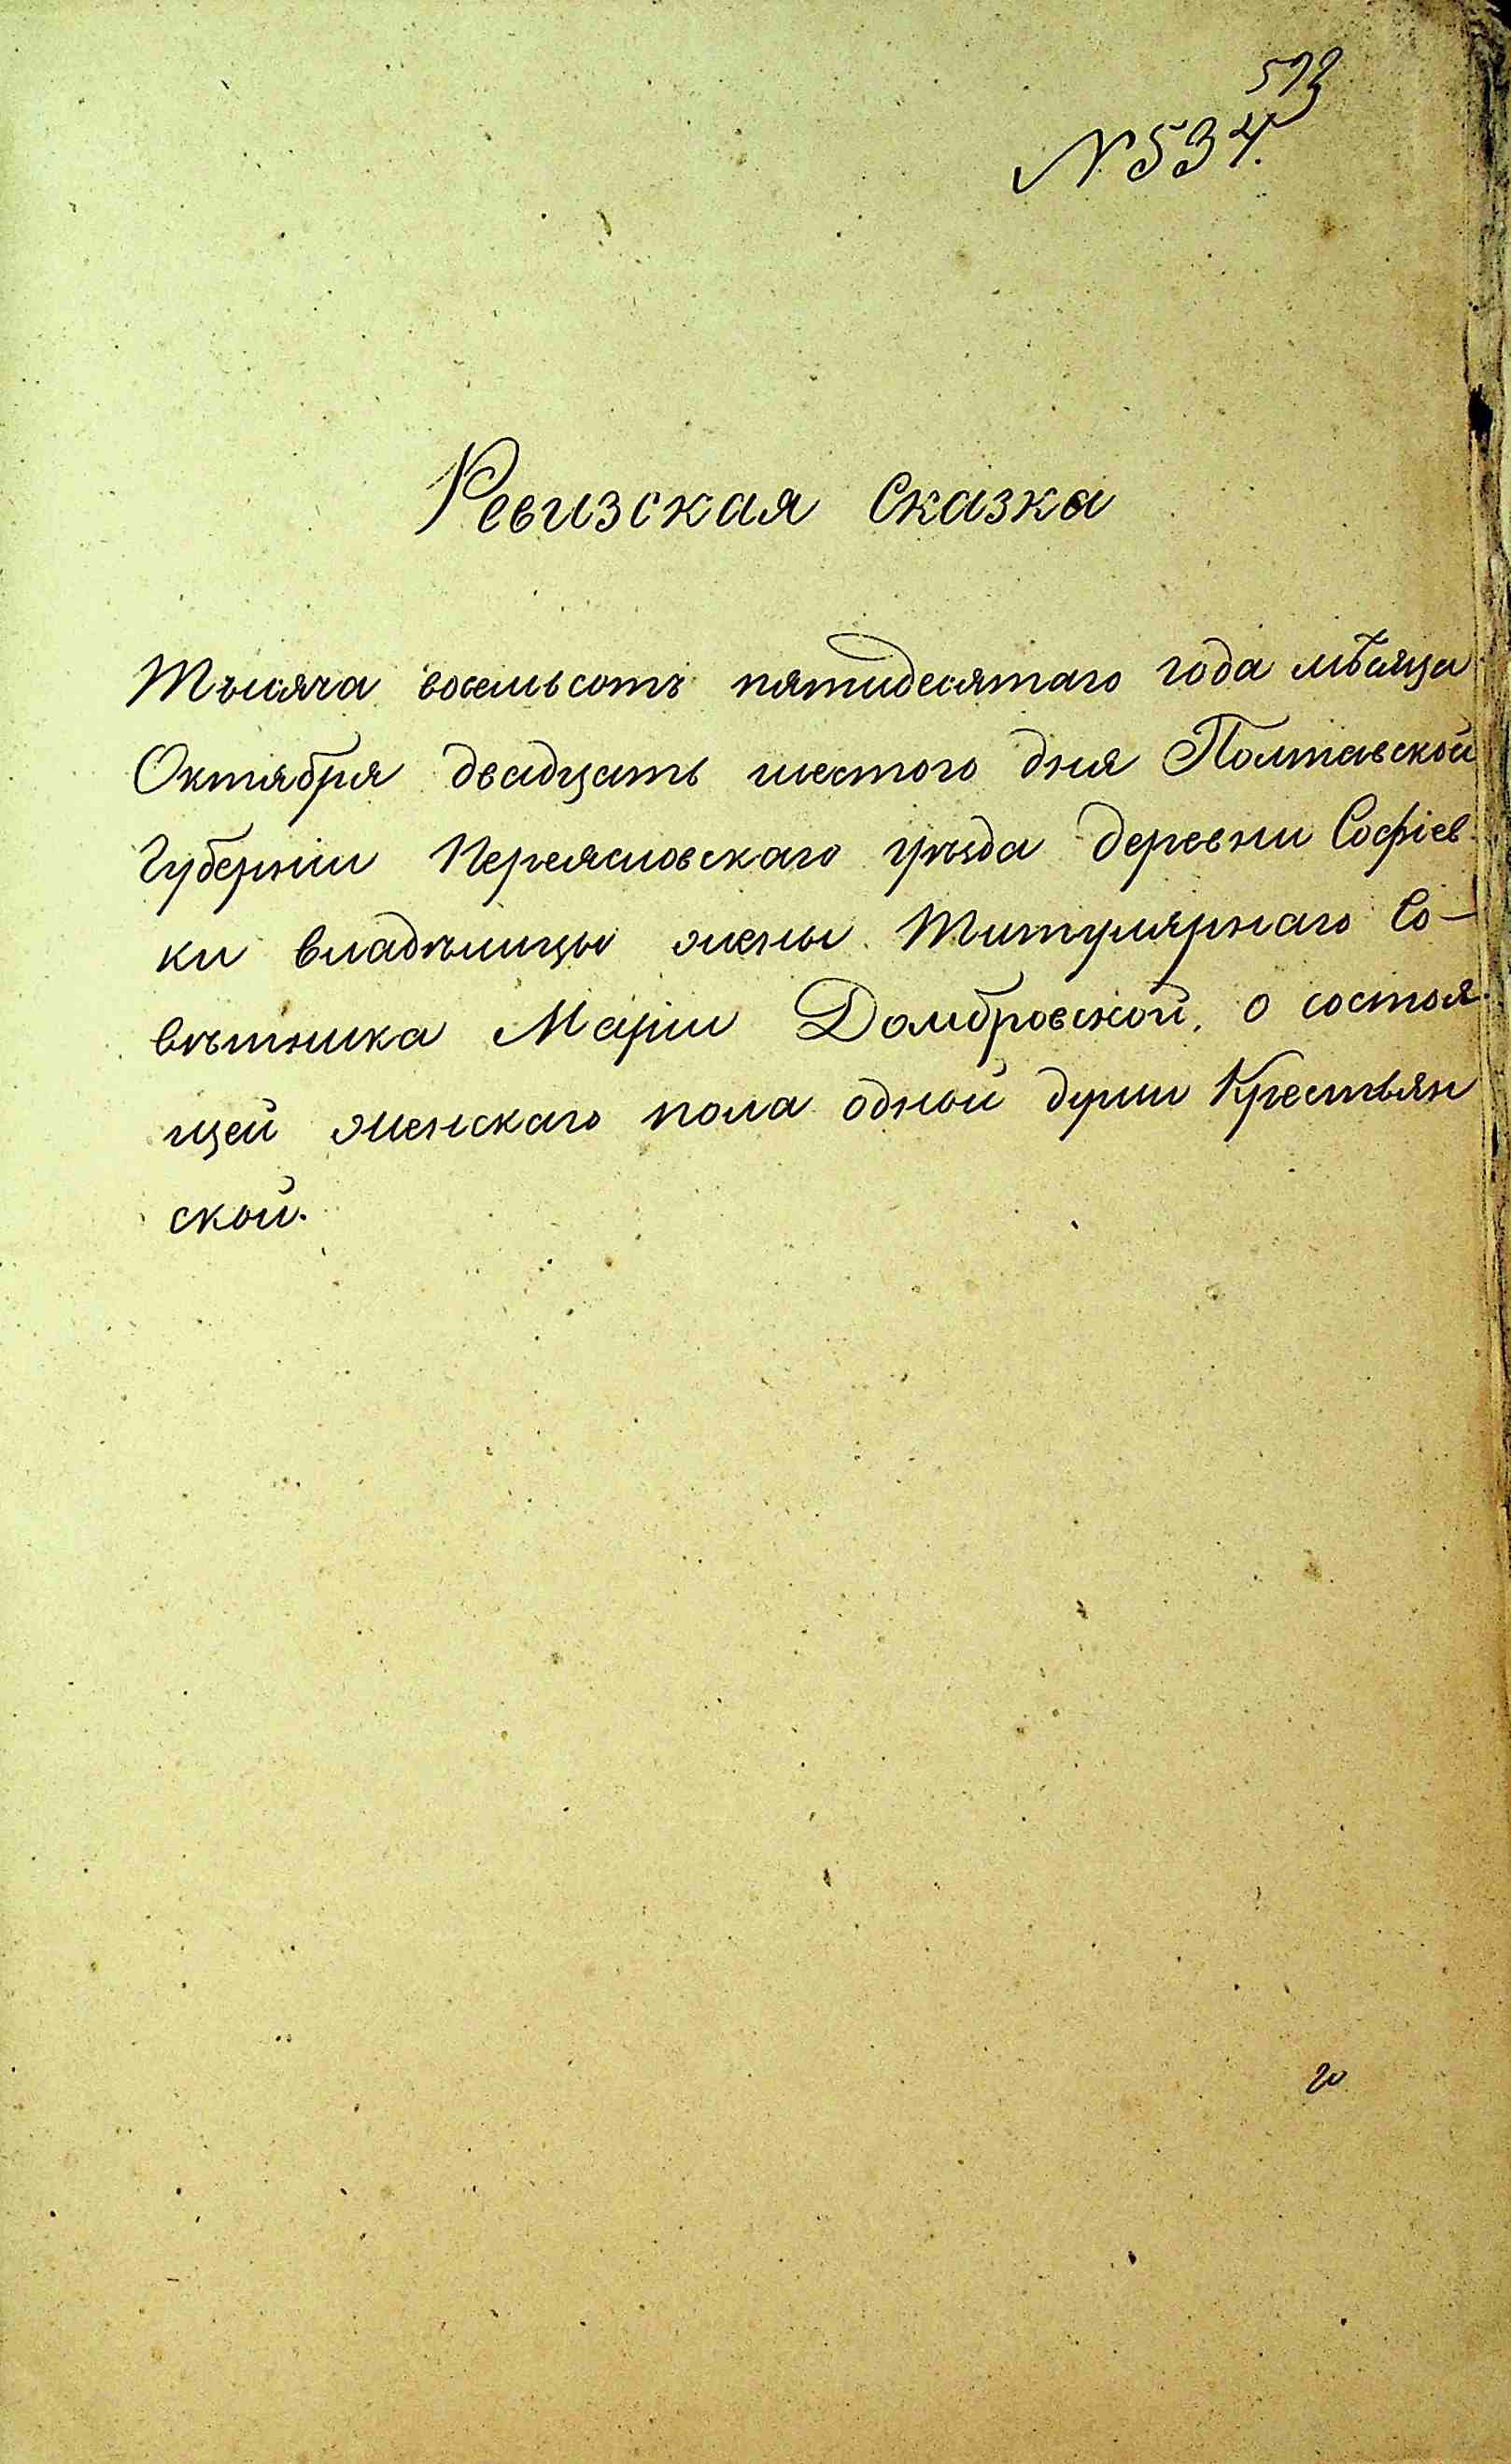 573
№ 534.
Ревизская Сказка
Тысяча восемьсотъ пятидесятаго года мѣсяца
Октября двадцать шестого дня Полтавской
Губерніи Переясловскаго уѣзда деревни Софіев-
ки владѣлицы жены Титулярнаго Со-
вѣтника Маріи Домбровской, о состоя-
щей женскаго пола одной души Крестьян
ской.